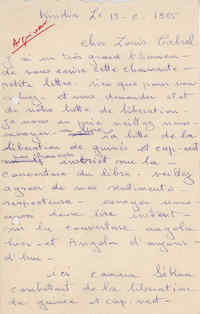 Kindia Le 13-8-1965
Arquivar
cher Louis Cabral
J'ai un très grand l'honneur
de vous écrire cette charmante
petite lettre. rien que pour vous
et vous demander
de notre lutte de libération
je vous en prie veillez nous
envoyer la lutte de la
libération de guinée et cap-vert
en français intitulé sur la
couverture du libre. veillez
agréer de mes sentiments
respectueux - envoyer nous
aussi deux livre intitulé
sur la couverture angola
hier - et Angola d'aujour-
d'hui -
ici camara Sékou
combattant de la libération
de guinée et cap-vert -